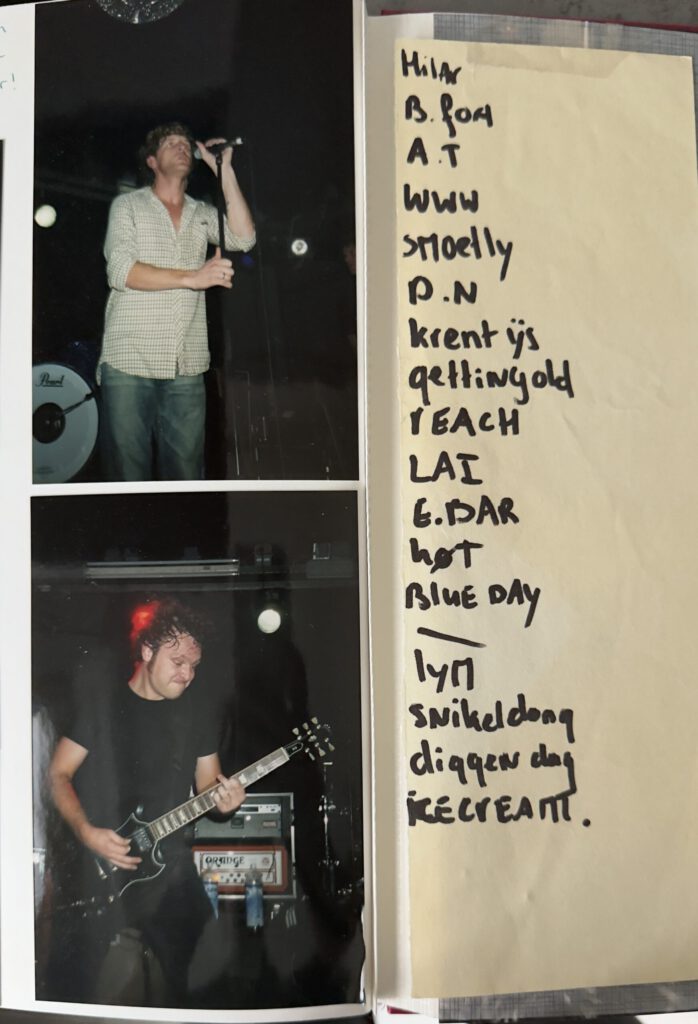 r!
Pearl
ORANGE
Hilar
B.form
A.T
WWW
smoelly
D.N
krent ijs
getting old
rEACH
LAI
E.DAR
høT
BluE DAY
lym
snikeldong
diggen dag
iCECrEAM.